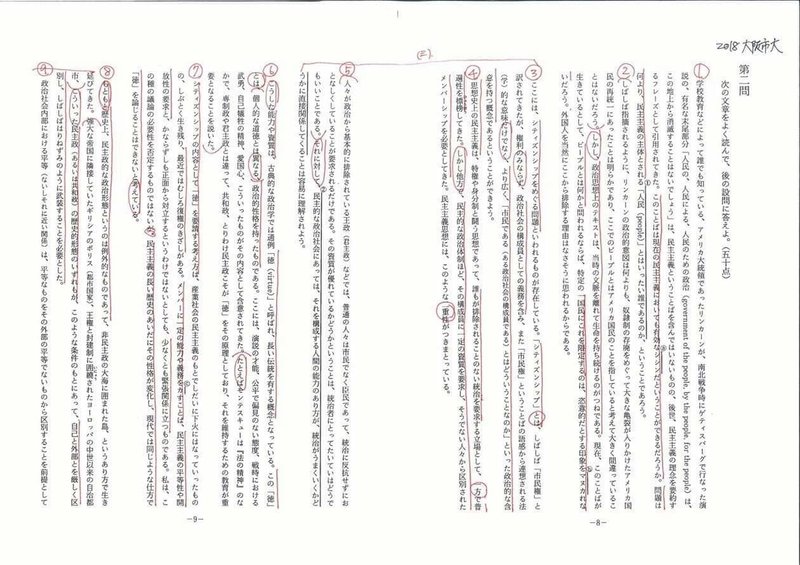 2018 大阪市大
第二問
次の文章をよく読んで、後の設問に答えよ。(五十点)
① 学校教育などによって誰でも知っている、アメリカ大統領であったリンカーンが、南北戦争時にゲティスバーグで行なった演
説の、有名な末尾部分「人民の、人民による、人民のための政治(government of the people, by the people, for the people)は、
この地上から消滅することはないでしょう」は、民主主義ということばを含んではいないものの、後世、民主主義の理念を要約す
るフレーズとして引用されてきた。このことは現在の民主主義においても有効なシシンだということができるだろうか。問題は
何より、民主主義の主体とされる「人民(people)」とはいったい誰であるのか、ということであろう。
② しばしば指摘されるように、リンカーンの政治的意図は何よりも、奴隷制の存廃をめぐって大きな亀裂が入りかけたアメリカ国
民の再統一にあったことは明らかであり、ここでのピープルとはアメリカ国民のことを指していると考えて大きく間違っているこ
とはないだろう。しかし政治思想上のテキストは、当時の文脈を離れて生命を持ち続けるのがつねである。現在、このことばが
生きているとして、ピープルとは何かと問われるならば、特定の「国民」にこれを限定するのは、恣意的だとする印象をマヌカれな
いだろう。外国人を当然にここから排除する理由はなさそうに思われるからである。
(三)
③ ここには、「シティズンシップ」をめぐる問題といわれるものが存在している。「シティズンシップ」とは、しばしば「市民権」と
訳されてきたが、権利のみならず、政治社会の構成員としての義務を含み、また「市民権」ということばの語感から連想される法
(学)的な意味だけでなく、より広く、「市民である(ある政治社会の構成員である)とはどういうことなのか」といった政治的な含
意を持つ概念であるということができよう。
④ 思想史上の民主主義は、特権や身分制と闘う思想であって、誰もが排除されることのない統治を要求する立場として、一方で普
遍性を標榜してきた。しかし他方で、民主的な政治体制ほど、その構成員に一定の資質を要求し、そうでない人々から区別された
メンバーシップを必要としてきた。民主主義思想には、このような二重性がつきまとっている。
−8−
⑤ 人々が政治から基本的に排除されている王政(君主政)などでは、普通の人々は市民でなく臣民であって、統治に反抗せずにお
となしくしていることが要求されるだけである。その資質が優れているかどうかということは、統治者にとってたいていはどうで
もいいことである。それに対して、民主的な政治社会にあっては、それを構成する人間の能力のあり方が、統治がうまくいくかど
うかに直接関係してくることは容易に理解されよう。
⑥ こうした能力や資質は、古典的な政治学では通例「徳(virtue)」と呼ばれ、長い伝統を有する概念となっている。この「徳」
とは、個人的な道徳とは異なる、政治的性格を持ったものである。ここには、演説の才能、公平で偏見のない態度、戦時における
武勇、自己犠牲の精神、愛国心、こういったものがその内容として含意されてきた。たとえばモンテスキューは『法の精神』のな
かで、専制政や君主政とは違って、共和政、とりわけ民主政こそが「徳」をその原理としており、それを維持するための教育が重
要となることを説いた。
⑦ シティズンシップの内容として「徳」を要請する考え方は、産業社会の民主主義のもとでしだいに下火にはなっていったもの
の、しぶとく生き残り、最近ではむしろ復権のきざしがある。メンバーに一定の能力や義務を力すことは、民主主義の平等性や開
放性の要求と、かならずしも正面から対立するというわけではないとしても、少なくとも緊張関係に立つものである。私は、こ
の種の議論の必要性を否定するものではないが、民主主義の長い歴史のあいだにその性格が変化し、現代では同じような仕方で
「徳」を論じることはできないと考えている。
⑧ もともと歴史上、民主政的な政治形態というのは例外的なものであって、非民主政の大海に囲まれた島、というあり方で生き
延びてきた。強大な帝国に隣接していたギリシアのポリス(都市国家)、王権と封建制に囲繞されたヨーロッパの中世以来の自治都
市、こういった民主政(あるいは共和政)の歴史的形態のいずれもが、このような条件のもとにあって、自己と外部とを厳しく区
別し、しばしばはりねずみのように武装することを必要とした。
⑨ 政治社会内部における平等(ないしそれに近い関係)は、平等なものをその外部の平等でないものから区別することを前提として
−9−